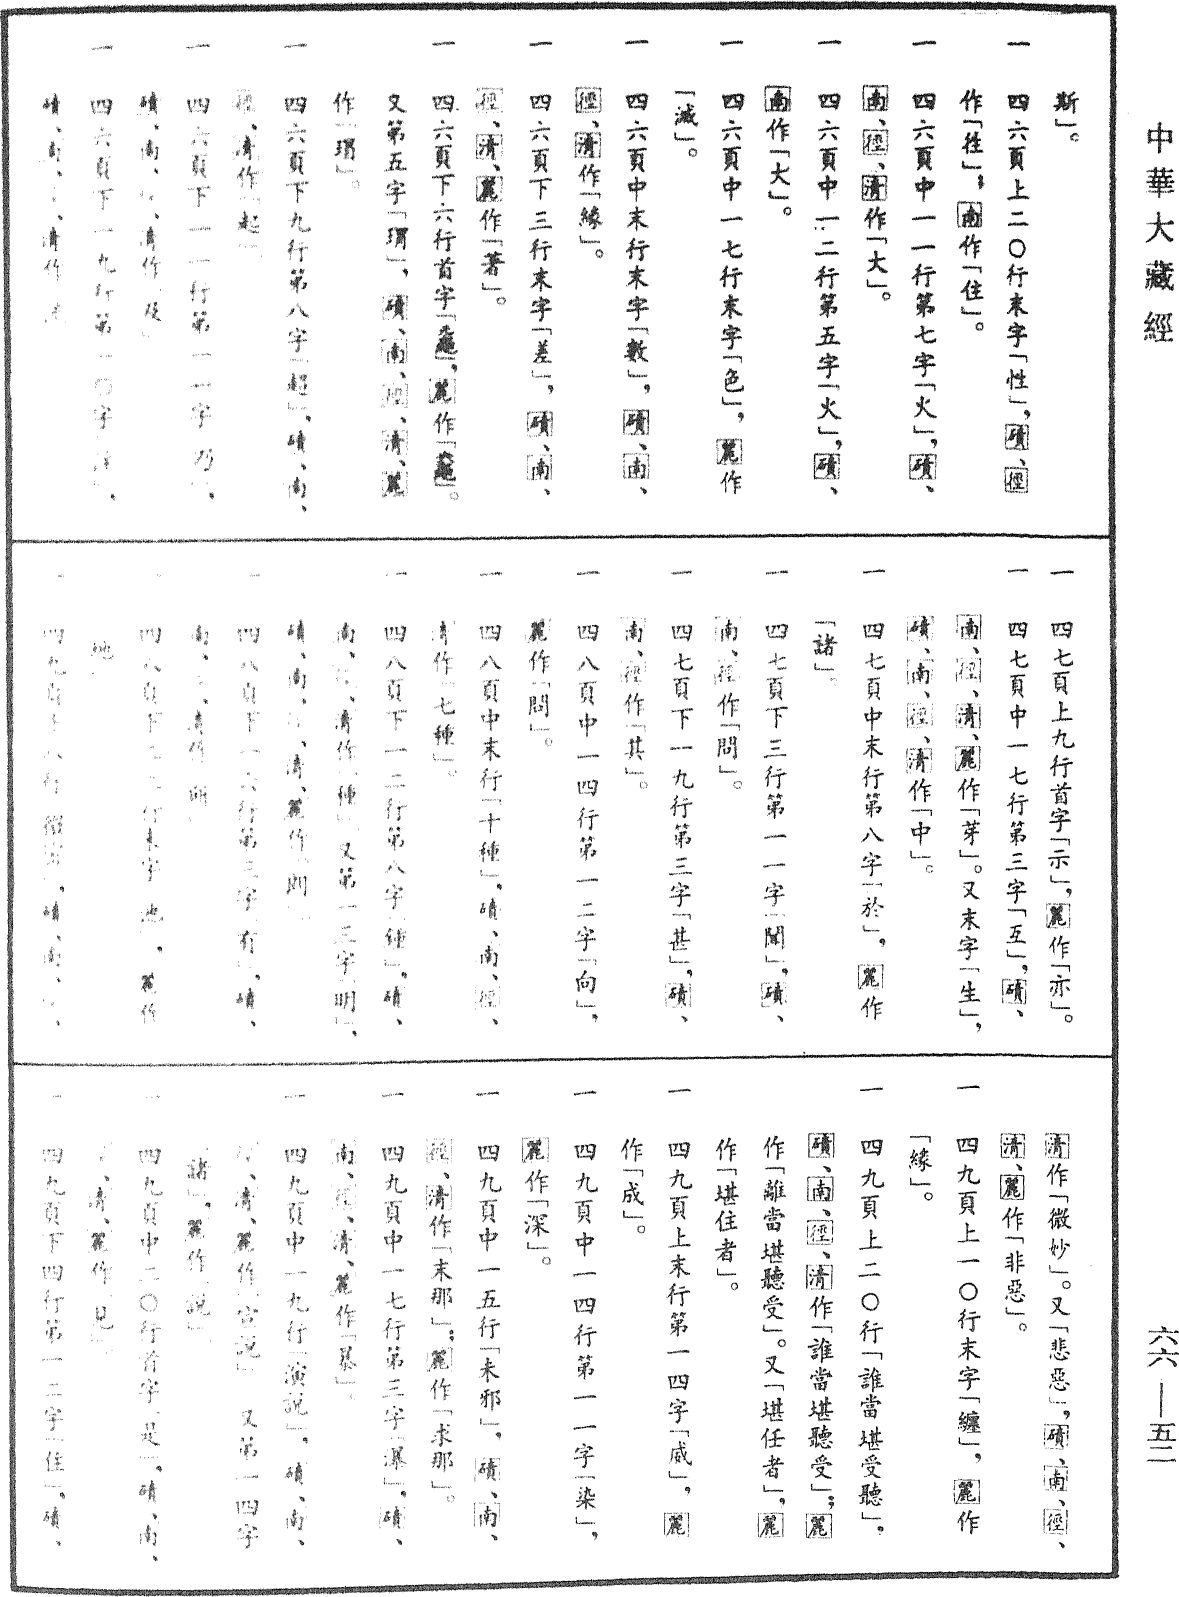 中華大藏經
六六—五二
斯」。
一 四六頁上二〇行末字「性」，磧、徑
作「徃」；南作「住」。
一 四六頁中一一行第七字「火」，磧、
南、徑、清作「大」。
一 四六頁中一二行第五字「火」，磧、
南作「大」。
一 四六頁中一七行末字「色」，麗作
「滅」。
一 四六頁中末行末字「數」，磧、南、
徑、清作「緣」。
一 四六頁下三行末字「差」，磧、南、
徑、清、麗作「著」。
一 四六頁下六行首字「龜」，麗作「龜」。
又第五字「㺯」，磧、南、徑、清、麗
作「㺯」。
一 四六頁下九行第八字「超」，磧、南、
徑、清作「起」。
一 四六頁下一一行第一一字「乃」，
磧、南、徑、清作「及」
一 四六頁下一九行第一〇字
磧、南、清作
一 四七頁上九行首字「示」，麗作「亦」。
一 四七頁中一七行第三字「互」，磧、
南、徑、清、麗作「芽」。又末字「生」，
磧、南、徑、清作「中」。
一 四七頁中末行第八字「於」，麗作
「諸」。
一 四七頁下三行第一一字「聞」，磧、
南、徑作「問」。
一 四七頁下一九行第三字「甚」，磧、
南、徑作「其」。
一 四八頁中一四行第一二字「向」，
麗作「問」。
一 四八頁中末行「十種」，磧、南、徑、
清作「七種」。
一 四八頁下一二行第八字「鍾」，磧、
南、徑、清作「種」又第一三字「明」，
磧、南、徑、清、麗作「則」
一 四八頁下一六行第三字「有」，磧、
南、清作「所」
一 四八頁下二 行末字「也」，麗作
「地」
一 四九頁上八行「微 」，磧、南、
清作「微妙」。又「悲惡」，磧、南、徑、
清、麗作「非惡」。
一 四九頁上一〇行末字「纏」，麗作
「緣」。
一 四九頁上二〇行「誰當堪受聽」，
磧、南、徑、清作「誰當堪聽受」；麗
作「離當堪聽受」。又「堪任者」，麗
作「堪住者」。
一 四九頁上末行第一四字「威」，麗
作「成」。
一 四九頁中一四行第一一字「染」，
麗作「深」。
一 四九頁中一五行「未邪」，磧、南、
徑、清作「末那」；麗作「求那」。
一 四九頁中一七行第三字「瀑」，磧、
南、徑、清、麗作「暴」。
一 四九頁中一九行「演說」，磧、南、
徑、清、麗作「宣說」又第一四字
「諸」，麗作「說」
一 四九頁中二〇行首字「是」，磧、南、
清、麗作「見」
一 四九頁下四行第一二字「住」，磧、